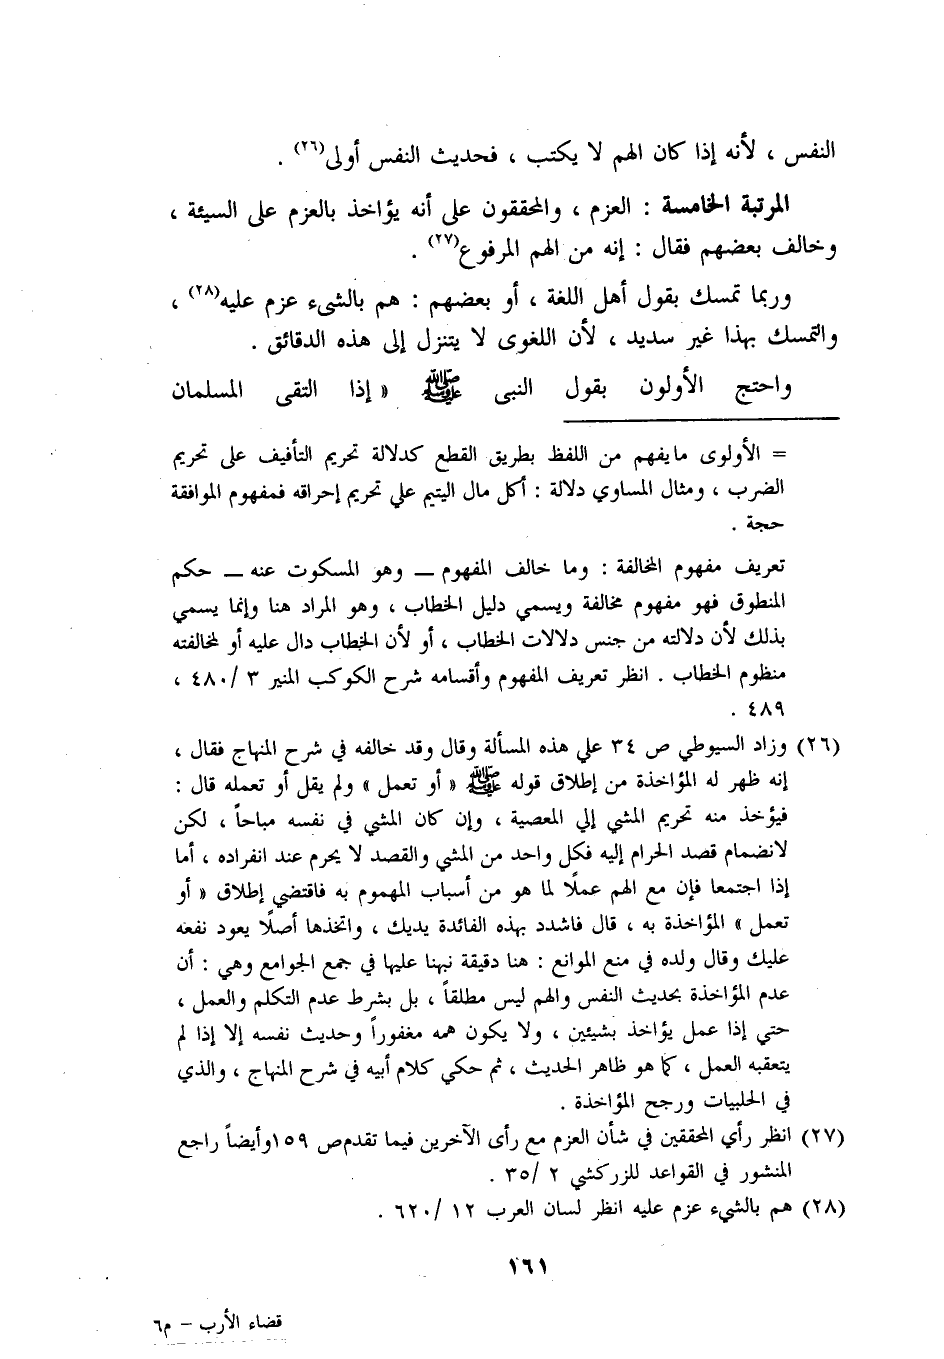 النفس ، لأنه إذا كان الهم لا يكتب ، فحديث النفس أولى(٢٦) .
المرتبة الخامسة : العزم ، والمحققون على أنه يؤاخذ بالعزم على السيئة ،
وخالف بعضهم فقال : إنه من الهم المرفوع(٢٧) .
وربما تمسك بقول أهل اللغة ، أو بعضهم : هم بالشىء عزم عليه(٢٨) ،
والتمسك بهذا غير سديد ، لأن اللغوى لا يتنزل إلى هذه الدقائق .
واحتج الأولون بقول النبى ﷺ « إذا التقى المسلمان
= الأولوى مايفهم من اللفظ بطريق القطع كدلالة تحريم التأفيف على تحريم
الضرب ، ومثال المساوي دلالة : أكل مال اليتيم علي تحريم إحراقه فمفهوم الموافقة
حجة .
تعريف مفهوم المخالفة : وما خالف المفهوم ــ وهو المسكوت عنه ــ حكم
المنطوق فهو مفهوم مخالفة ويسمي دليل الخطاب ، وهو المراد هنا وإنما يسمي
بذلك لأن دلالته من جنس دلالات الخطاب ، أو لأن الخطاب دال عليه أو لمخالفته
منظوم الخطاب . انظر تعريف المفهوم وأقسامه شرح الكوكب المنير ٣ /٤٨٠ ،
٤٨٩ .
(٢٦) وزاد السيوطي ص ٣٤ علي هذه المسألة وقال وقد خالفه في شرح المنهاج فقال ،
إنه ظهر له المؤاخذة من إطلاق قوله ﷺ « أو تعمل » ولم يقل أو تعمله قال :
فيؤخذ منه تحريم المشي إلي المعصية ، وإن كان المشي في نفسه مباحاً ، لكن
لانضمام قصد الحرام إليه فكل واحد من المشي والقصد لا يحرم عند انفراده ، أما
إذا اجتمعا فإن مع الهم عملًا لما هو من أسباب المهموم به فاقتضي إطلاق « أو
تعمل » المؤاخذة به ، قال فاشدد بهذه الفائدة يديك ، واتخذها أصلًا يعود نفعه
عليك وقال ولده في منع الموانع : هنا دقيقة نبهنا عليها في جمع الجوامع وهي : أن
عدم المؤاخذة بحديث النفس والهم ليس مطلقاً ، بل بشرط عدم التكلم والعمل ،
حتي إذا عمل يؤاخذ بشيئين ، ولا يكون همه مغفوراً وحديث نفسه إلا إذا لم
يتعقبه العمل ، كما هو ظاهر الحديث ، ثم حكي كلام أبيه في شرح المنهاج ، والذي
في الحلبيات ورجح المؤاخذة .
(٢٧) انظر رأي المحققين في شأن العزم مع رأى الآخرين فيما تقدم ص ١٥٩ وأيضاً راجع
المنشور في القواعد للزركشي ٢ /٣٥ .
(٢٨) هم بالشيء عزم عليه انظر لسان العرب ١٢ /٦٢٠ .
١٦١
قضاء الأرب – م٦